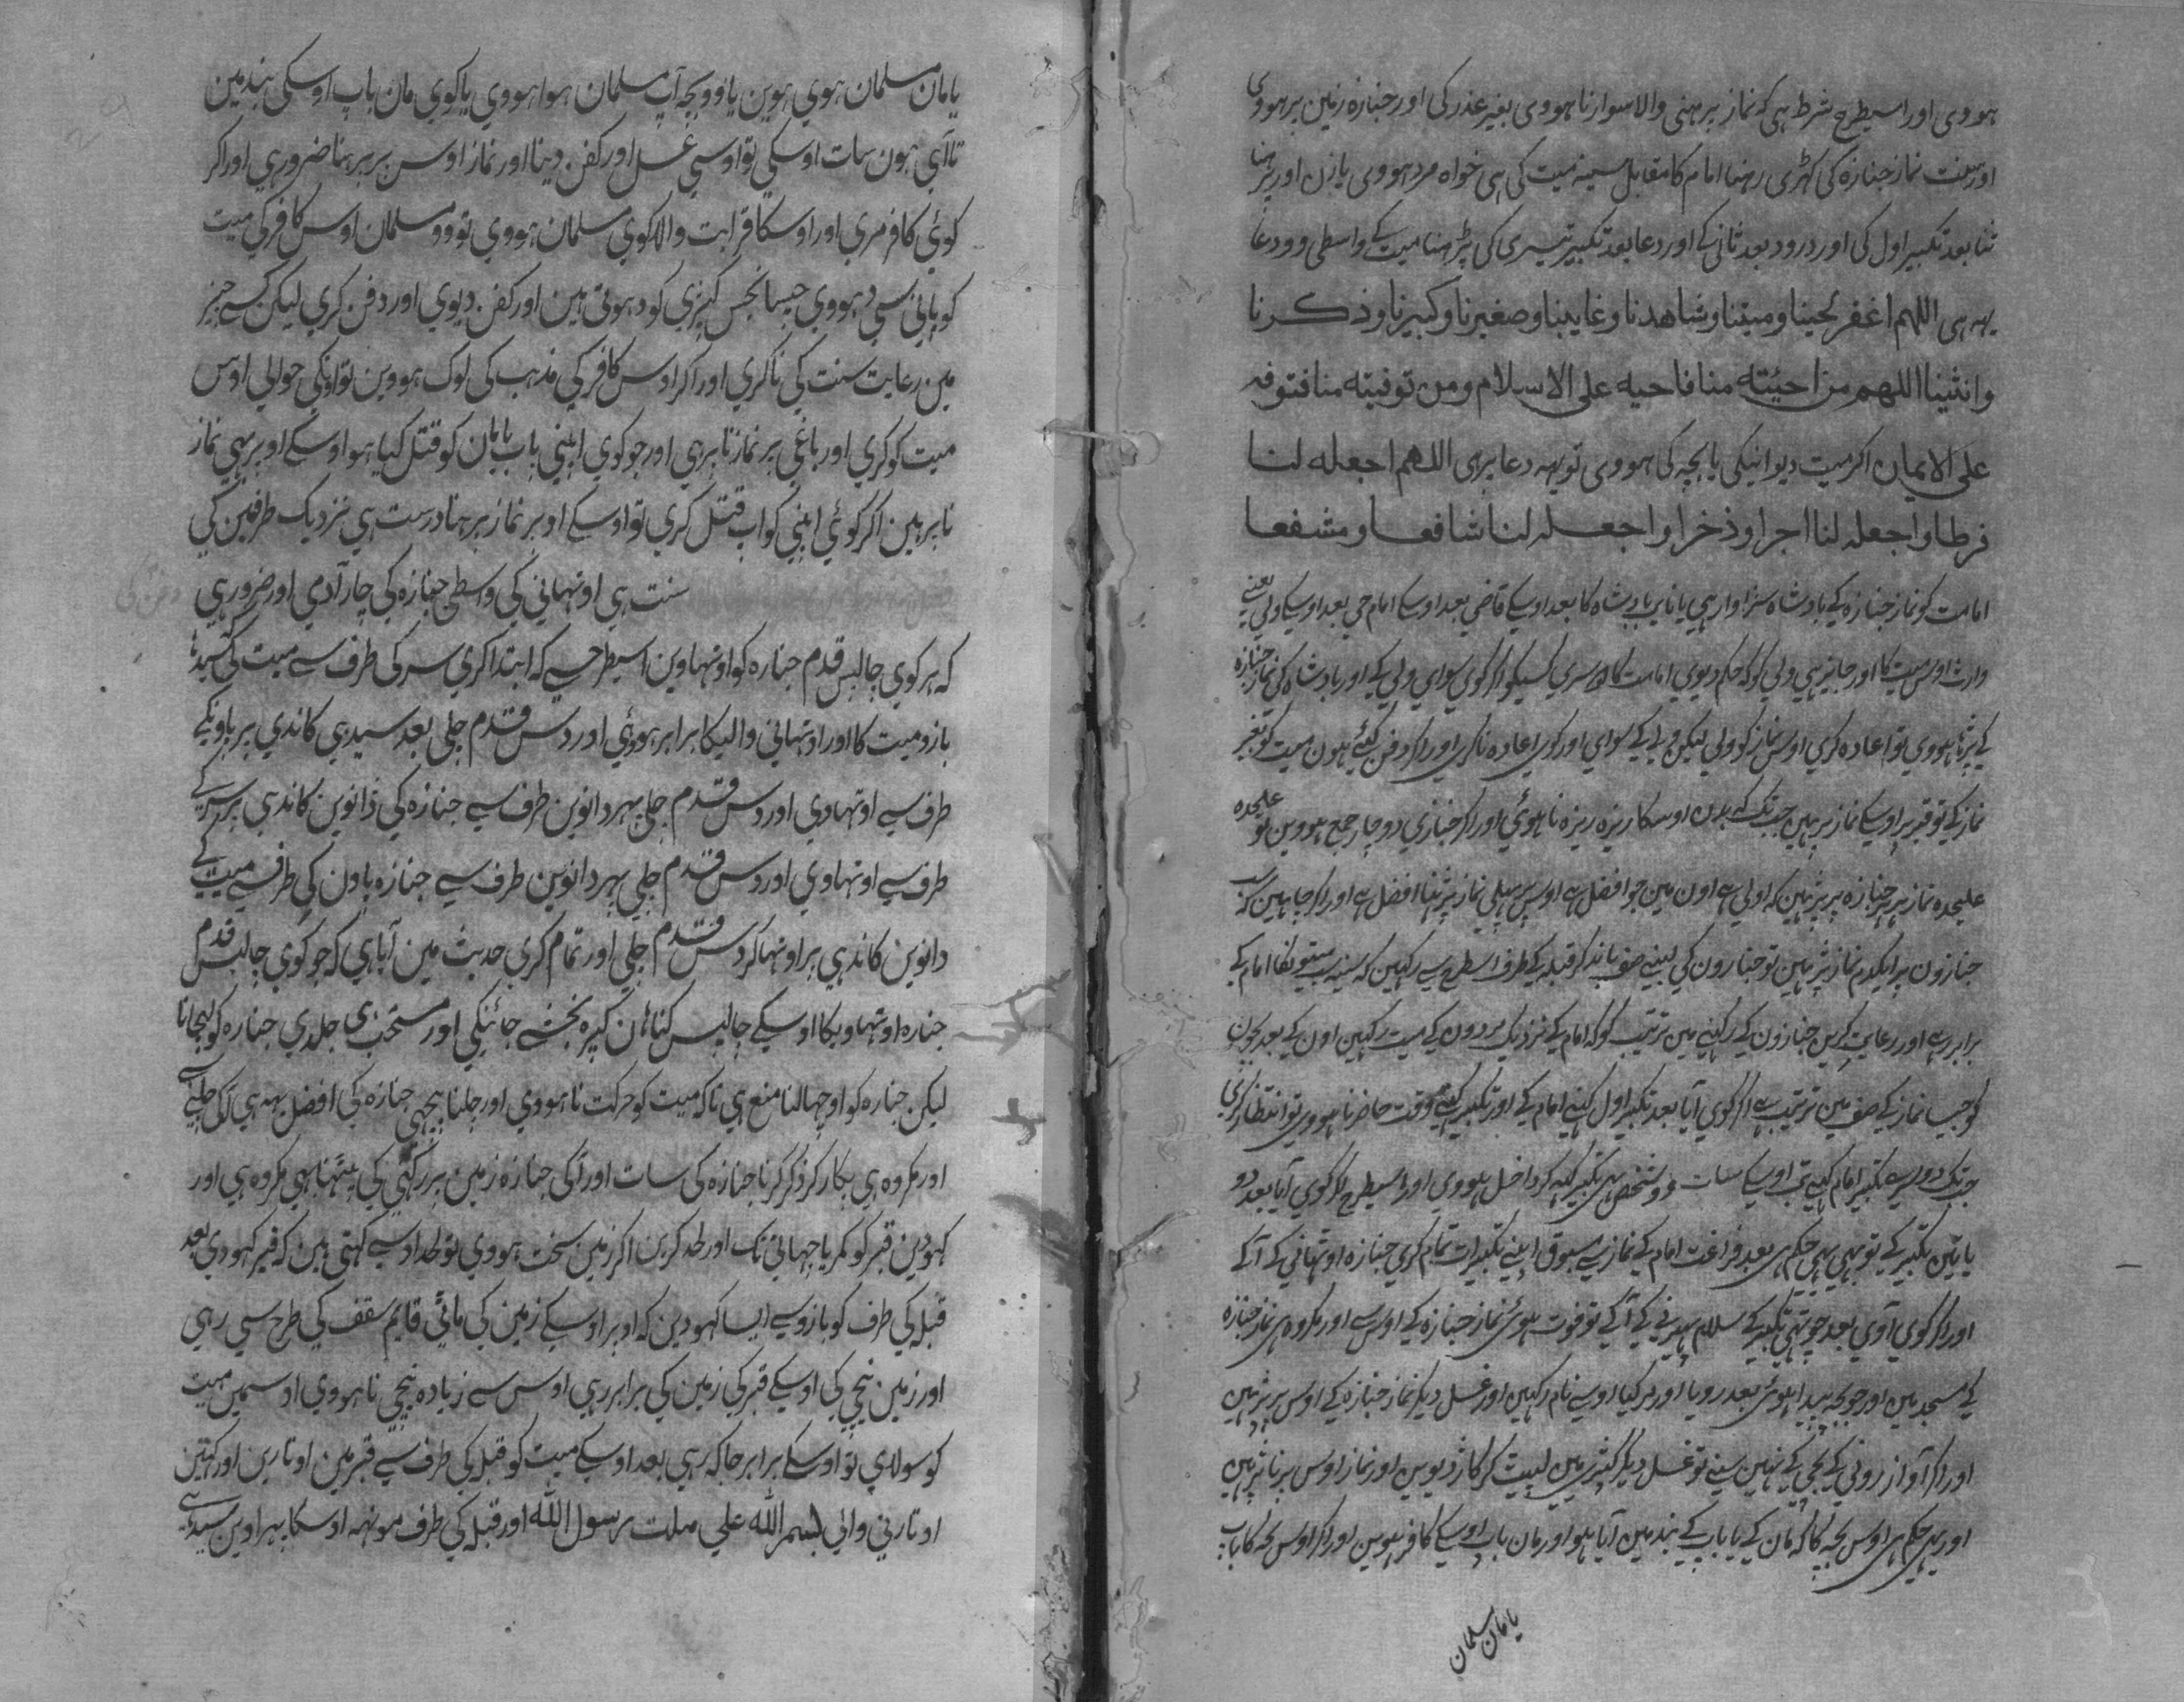 ہووی اور اسیطرح شرط ہی کہ نماز پرہنی والا سوار نا ہووی بغیر عذر کی اور جنازہ زمین پر ہووی
اور سنت نماز جنازہ کی کہڑی رہنا امام کا مقابل سینہ میت کی ہی خواہ مرد ہووی یا زن اور پڑہنا
ثنا بعد تکبیر اول کی اور درود بعد ثانی کے اور دعا بعد تکبیر تیسری کی پڑہنا میت کے واسطی وو دعا
یہہ ہی اللہم اغفر لحینا ومیتنا وشاھدنا وغایبنا وصغیرنا وکبیرنا وذکرنا
وانثینا اللہم من احییتہ منا فاحیہ علی الاسلام ومن توفیتہ منا فتوفہ
علی الایمان اکر میت دیوانیکی یا بچہ کی ہووی تو یہہ دعا پرہی اللھم اجعلہ لنا
فرطا واجعلہ لنا اجرا وذخرا واجعلہ لنا شافعا ومشفعا
امامت کو نماز جنازہ کے بادشاہ سزاوار ہی یا نایب بادشاہ کا بعد اوسکے قاضی بعد اوسکے امام حی بعد اوسکے ولی یعنے
وارث اوس میت کا اور جایز ہی ولی کو کہ حکم دیوی امامت کا دوسری کسیکو اکر کوی سوای ولی کے اور بادشاہ کی نماز جنازہ
کے پڑہا ہووی تو اعادہ کری اوس نماز کو ولی لیکن ولی کے سوای اور کوی اعادہ نا کری اور اکر دفن کئے ہون میت کو بغیر
نماز کے تو قبر پر اوسکے نماز پرہین جب تک کے بدن اوسکا ریزہ ریزہ نا ہوئی اور اکر جنازی دو چار جمع ہووین تو علیحدہ
علیحدہ نماز ہر جنازہ پر پڑہین کہ اولی ہے اون مین جو افضل ہے اوس پر پہلی نماز پڑہنا افضل ہے اور اکر چاہین کہ سب
جنازون پر ایکدم نماز پڑہین تو جنازون کی لنبے صف باند کر قبلہ کے طرف اسطرح سے رکہین کہ سینہ سبکے تلفا امام کے
برابر رہے اور رعایت کرین جنازون کے رکہنے مین ترتیب کو کہ امام کے نزدیک مردون کے میت رکہین اون کے بعد بچون
کو جیسا نماز کے صف مین ترتیب ہے اکر کوی آیا بعد تکبیر اول کہنے امام کے اور تکبیر کہتے وقت حاضر نا ہووی تو انتظار کری
جب تک دوسرے تکبیر امام کہے تب اوسکے سات وو شخص بہی تکبیر کہہ کر داخل ہووی اور اسیطرح اکر کوی آیا بعد دو
یا تین تکبیر کے تو بہی یہی حکم ہی بعد فراغت امام کے نماز سے مسبوق اپنے تکبیرات تمام کری جنازہ اوٹہانی کے آکے
اور اکر کوی آوی بعد چوتہی تکبیر کے سلام پہرنے کے آکے تو فوت ہوئی نماز جنازہ کے اوس سے اور مکروہ ہی نماز جنازہ
کے مسجد مین اور جو بچہ پیدا ہوئی بعد رویا اور مر کیا اوسے نام رکہین اور غسل دیکر نماز جنازہ کے اوس پر پڑہین
اور اکر آواز رونی کے بچی کے نہین سنے تو غسل دیکر کپڑی مین لپیٹ کر کاڑ دیوین اور نماز اوس پر نا پڑہین
اور یہی حکم ہی اوس بچہ کا کہ مان کے یا باپ کے بند مین آیا ہو اور مان باپ اوسکے کافر ہووین اور اکر اوس بچہ کا باپ
یا مان مسلمان
یا مان مسلمان ہوی ہوین یا وو بچہ آپ مسلمان ہوا ہووی یا کوی مان باپ اوسکی بند مین
نا آی ہون سات اوسکی تو اوسی غسل اور کفن دینا اور نماز اوس پر پرہنا ضرور ہی اور اکر
کوئی کافر مری اور اوسکا قرابت والا کوی مسلمان ہووی تو وو مسلمان اوس کافر کی میت
کو پانی سی دہووی جیسا نجس کپڑی کو دہوتی ہین اور کفن دیوی اور دفن کری لیکن کسے چیز
مین رعایت سنت کی نا کری اور اکر اوس کافر کی مذہب کی لوک ہووین تو اونکی حوالی اوس
میت کو کری اور باغی پر نماز نا پرہی اور جو کوی اپنی باپ یا مان کو قتل کیا ہو اوسکے اوپر بہی نماز
نا پرہین اکر کوئی اپنی کو اپ قتل کری تو اوسکے اوپر نماز پرہنا درست ہی نزدیک طرفین کی
سنت ہی اونہانی کی واسطی جنازہ کی چار آدمی اور ضرور ہی
کہ ہر کوی چالیس قدم جنازہ کو اونہاوین اسیطرحسے کہ ابتدا کری سر کی طرف سے میت کی سیدہا
بازو میت کا اور اونہانی والیکا برابر ہووئی اور دس قدم چلی بعد سیدہی کاندی پر پاونکے
طرف سے اونہاوی اور دس قدم چلی پہر دانوین طرف سے جنازہ کی ڈانوین کاندہی پر سر کے
طرف سے اونہاوی اور دس قدم چلی پہر دانوین طرف سے جنازہ پاون کی طرف سے میت کے
دانوین کاندہی پر اونہا کر دس قدم چلی اور تمام کری حدیث مین آیا ہی کہ جو کوی چالیس قدم
جنارہ اونہاویکا اوسکے چالیس کناہان کبیرہ بخشے جائنکی اور مستحب ہی جلدی جنارہ کو لیجانا
لیکن جنارہ کو اوچہالنا منع ہی تاکہ میت کو حرکت نا ہووی اور چلنا پیچہی جنازہ کی افضل یہہ ہی آکی چلنی سے
اور مکروہ ہی پکار کر ذکر کرنا جنازہ کی سات اور آکی جنازہ زمین پر رکہنی کی بیٹہنا بہی مکروہ ہی اور
کہودین قبر کو کمر یا چہاتی تک اور لحد کرین اکر زمین سخت ہووی تو لحد اوسے کہتی ہین کہ قبر کہودی بعد
قبلہ کی طرف کو بازو سے ایسا کہودین کہ اوپر اوسکے زمین کی مائی قایم سقف کی طرح سی رہی
اور زمین نیچی کی اوسکے قبر کی زمین کی برابر رہی اوس سے زیادہ نیچی نا ہووی اوسمین میت
کو سولای تو اوسکے برابر جاکہ رہی بعد اوسکے میت کو قبلہ کی طرف سے قبر مین اوتارین اور کہین
اوتارنی والی بسم الله علی ملت رسول الله اور قبلہ کی طرف مونہہ اوسکا پہراوین سیدہی